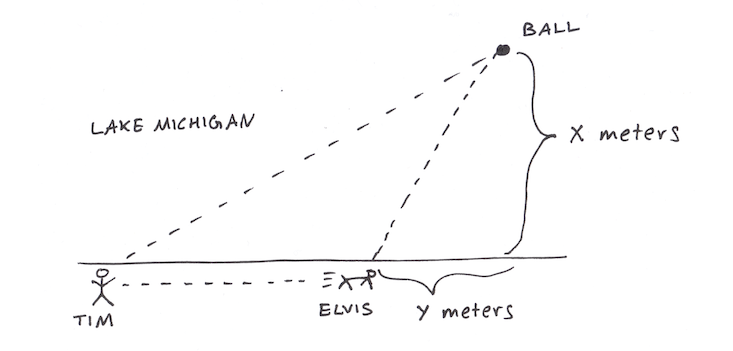 BALL
LAKE MICHIGAN
X meters
TIM
ELVIS
Y meters